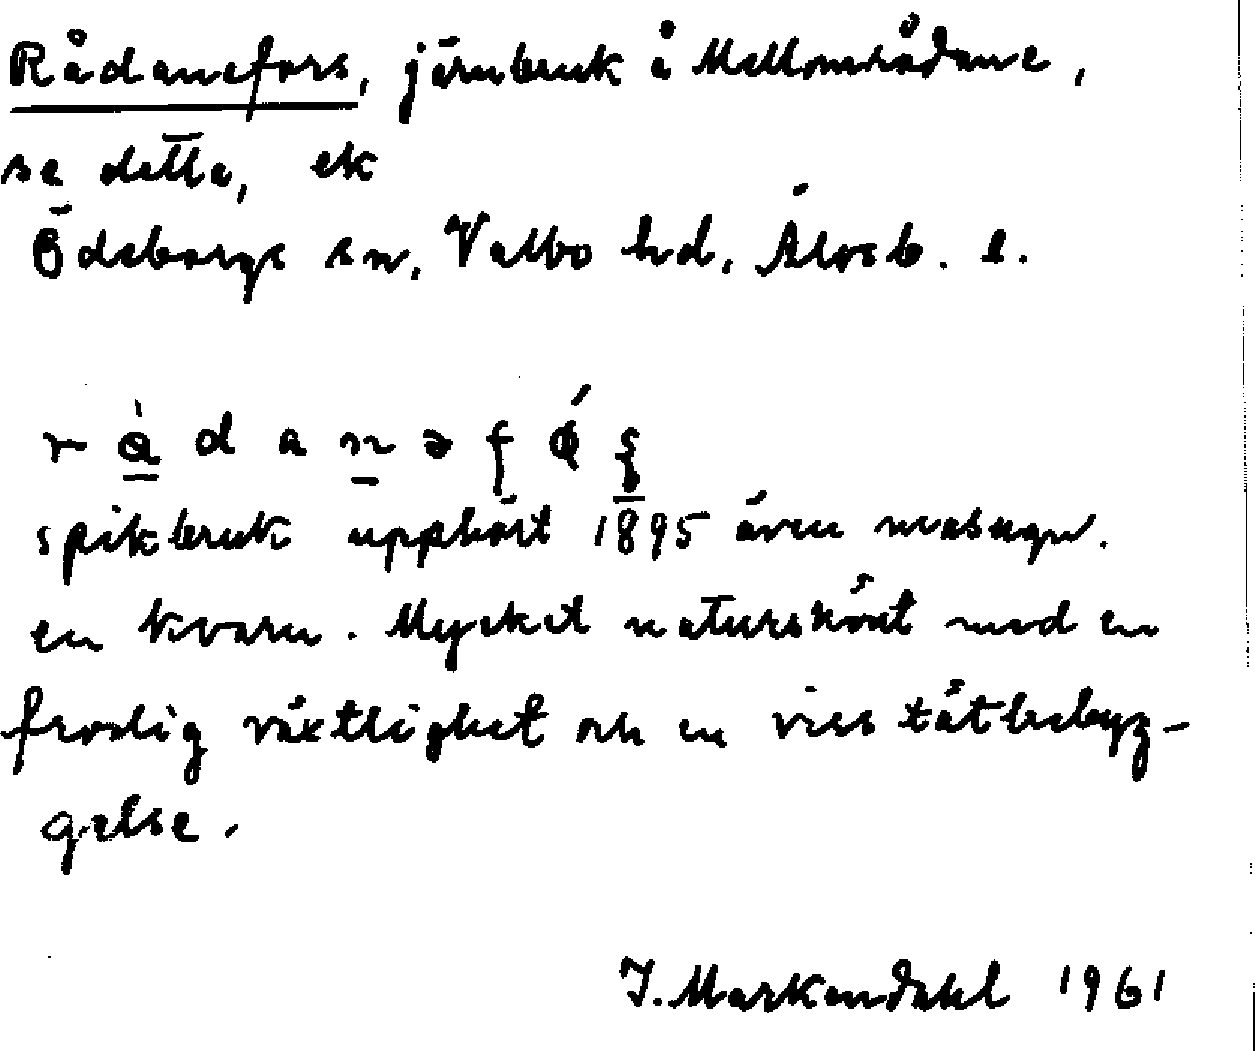 Rådanefors, järnbruk å Mellområdane,
se detta, ek
Ödeborgs sn, Valbo hd, Älvsb. l.
spikbruk upphört 1895 även
en kvarn. Mycket naturskönt med en
frodig växtlighet och en viss tätbebyg-
gelse.
J. Markendahl 1961